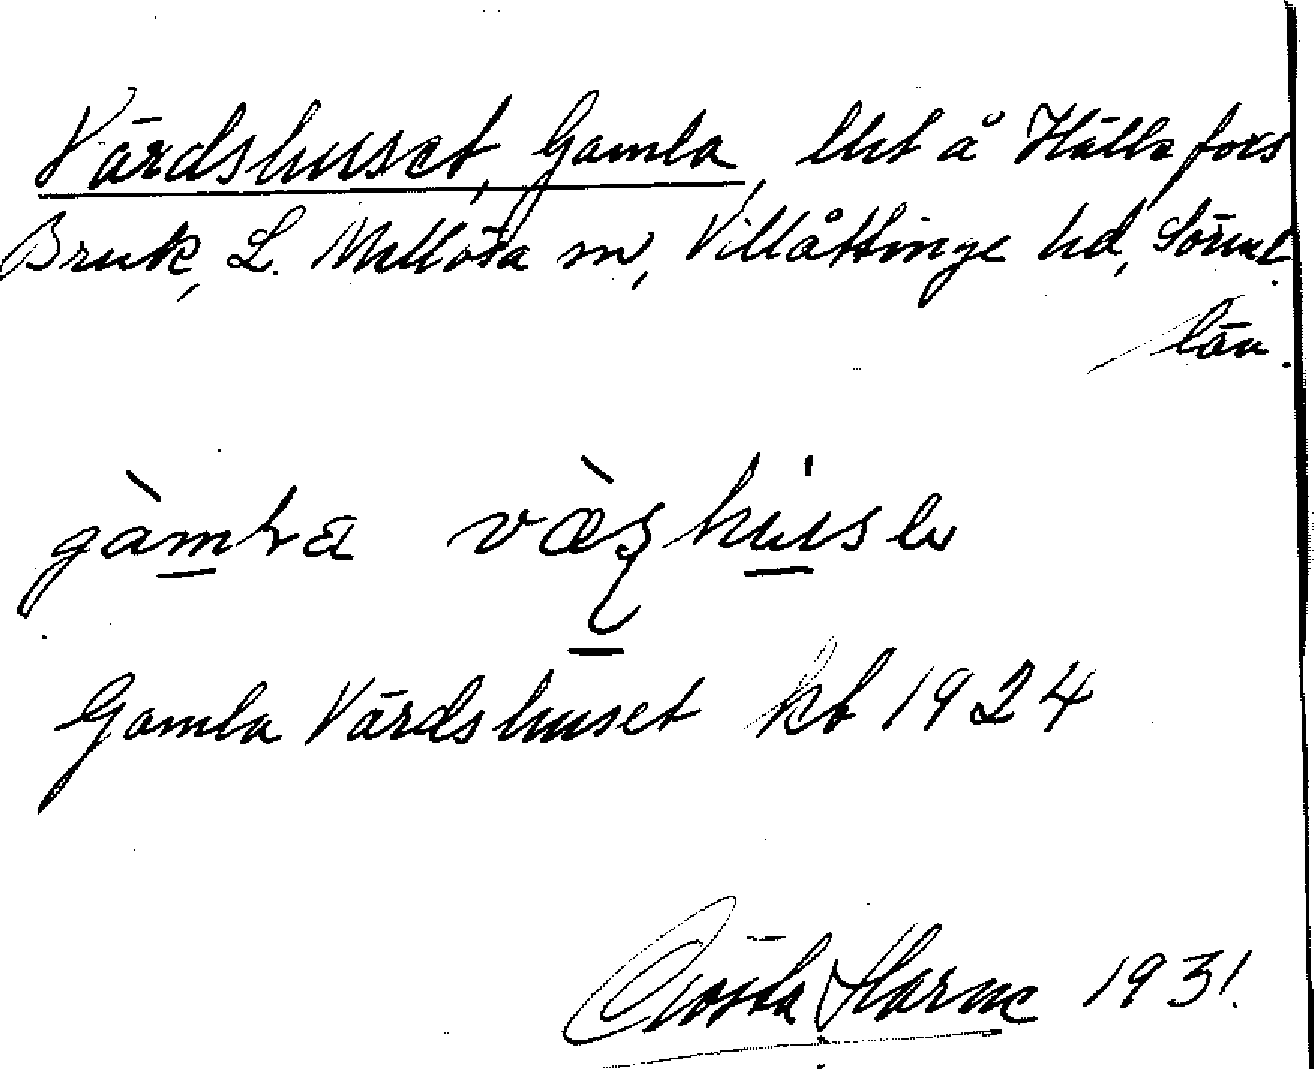 Värdshuset, Gamla, lht å Hälleforss
Bruk, L. Mellösa sn, Villåttinge hd, Söderml.
län.
gàmɫa væ̀ʂhúsə
Gamla Värdshuset kb 1924
Gösta 1931.